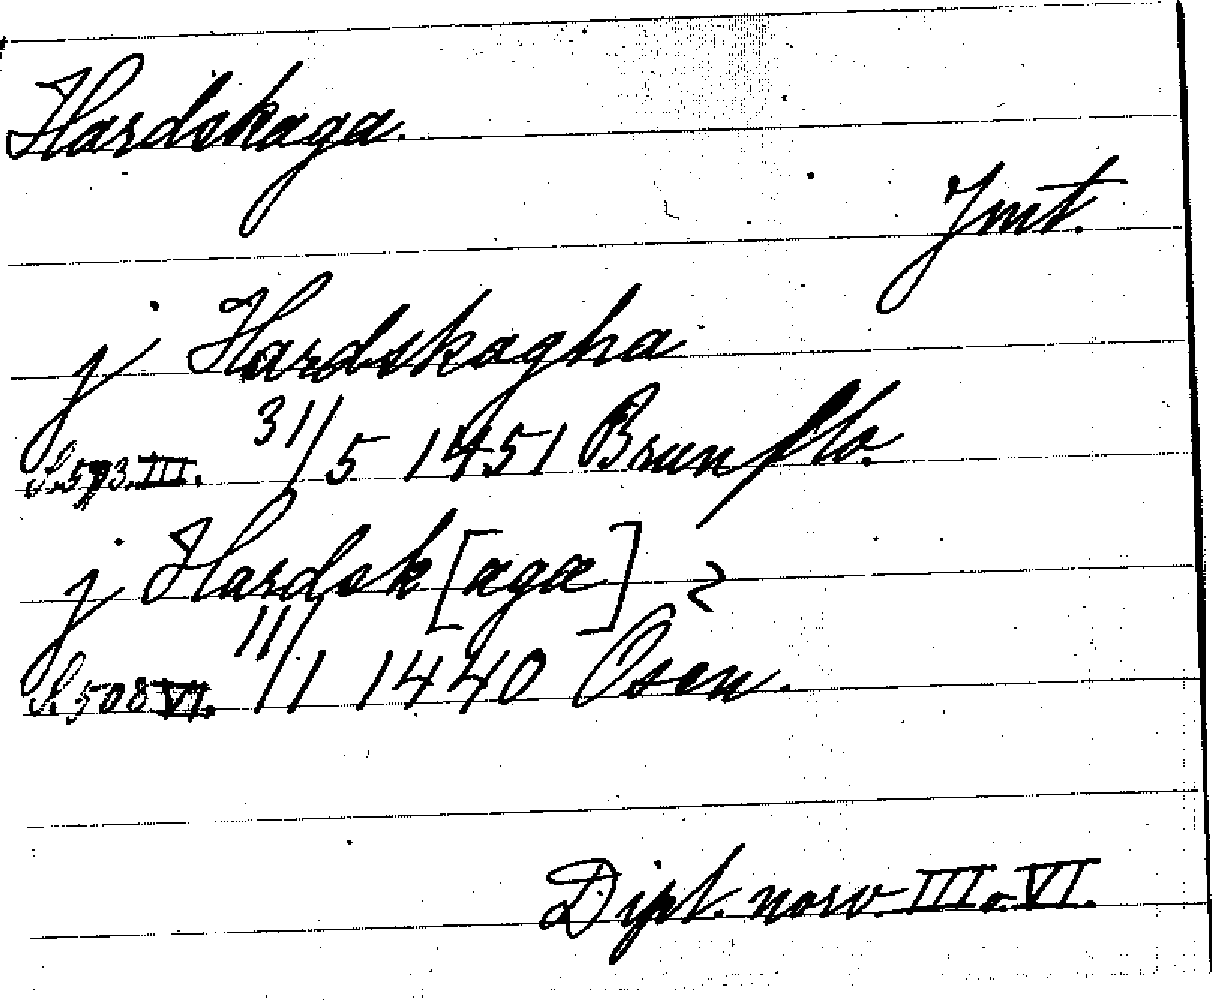 Hardskaga.
Jmt.
j Hardskagha
S. 593. III. 31/5 1451 Brunflo.
j Hardsk[aga] ?
S. 508 VI. 11/1 1440 Osen.
Dipl. norv. III o. VI.